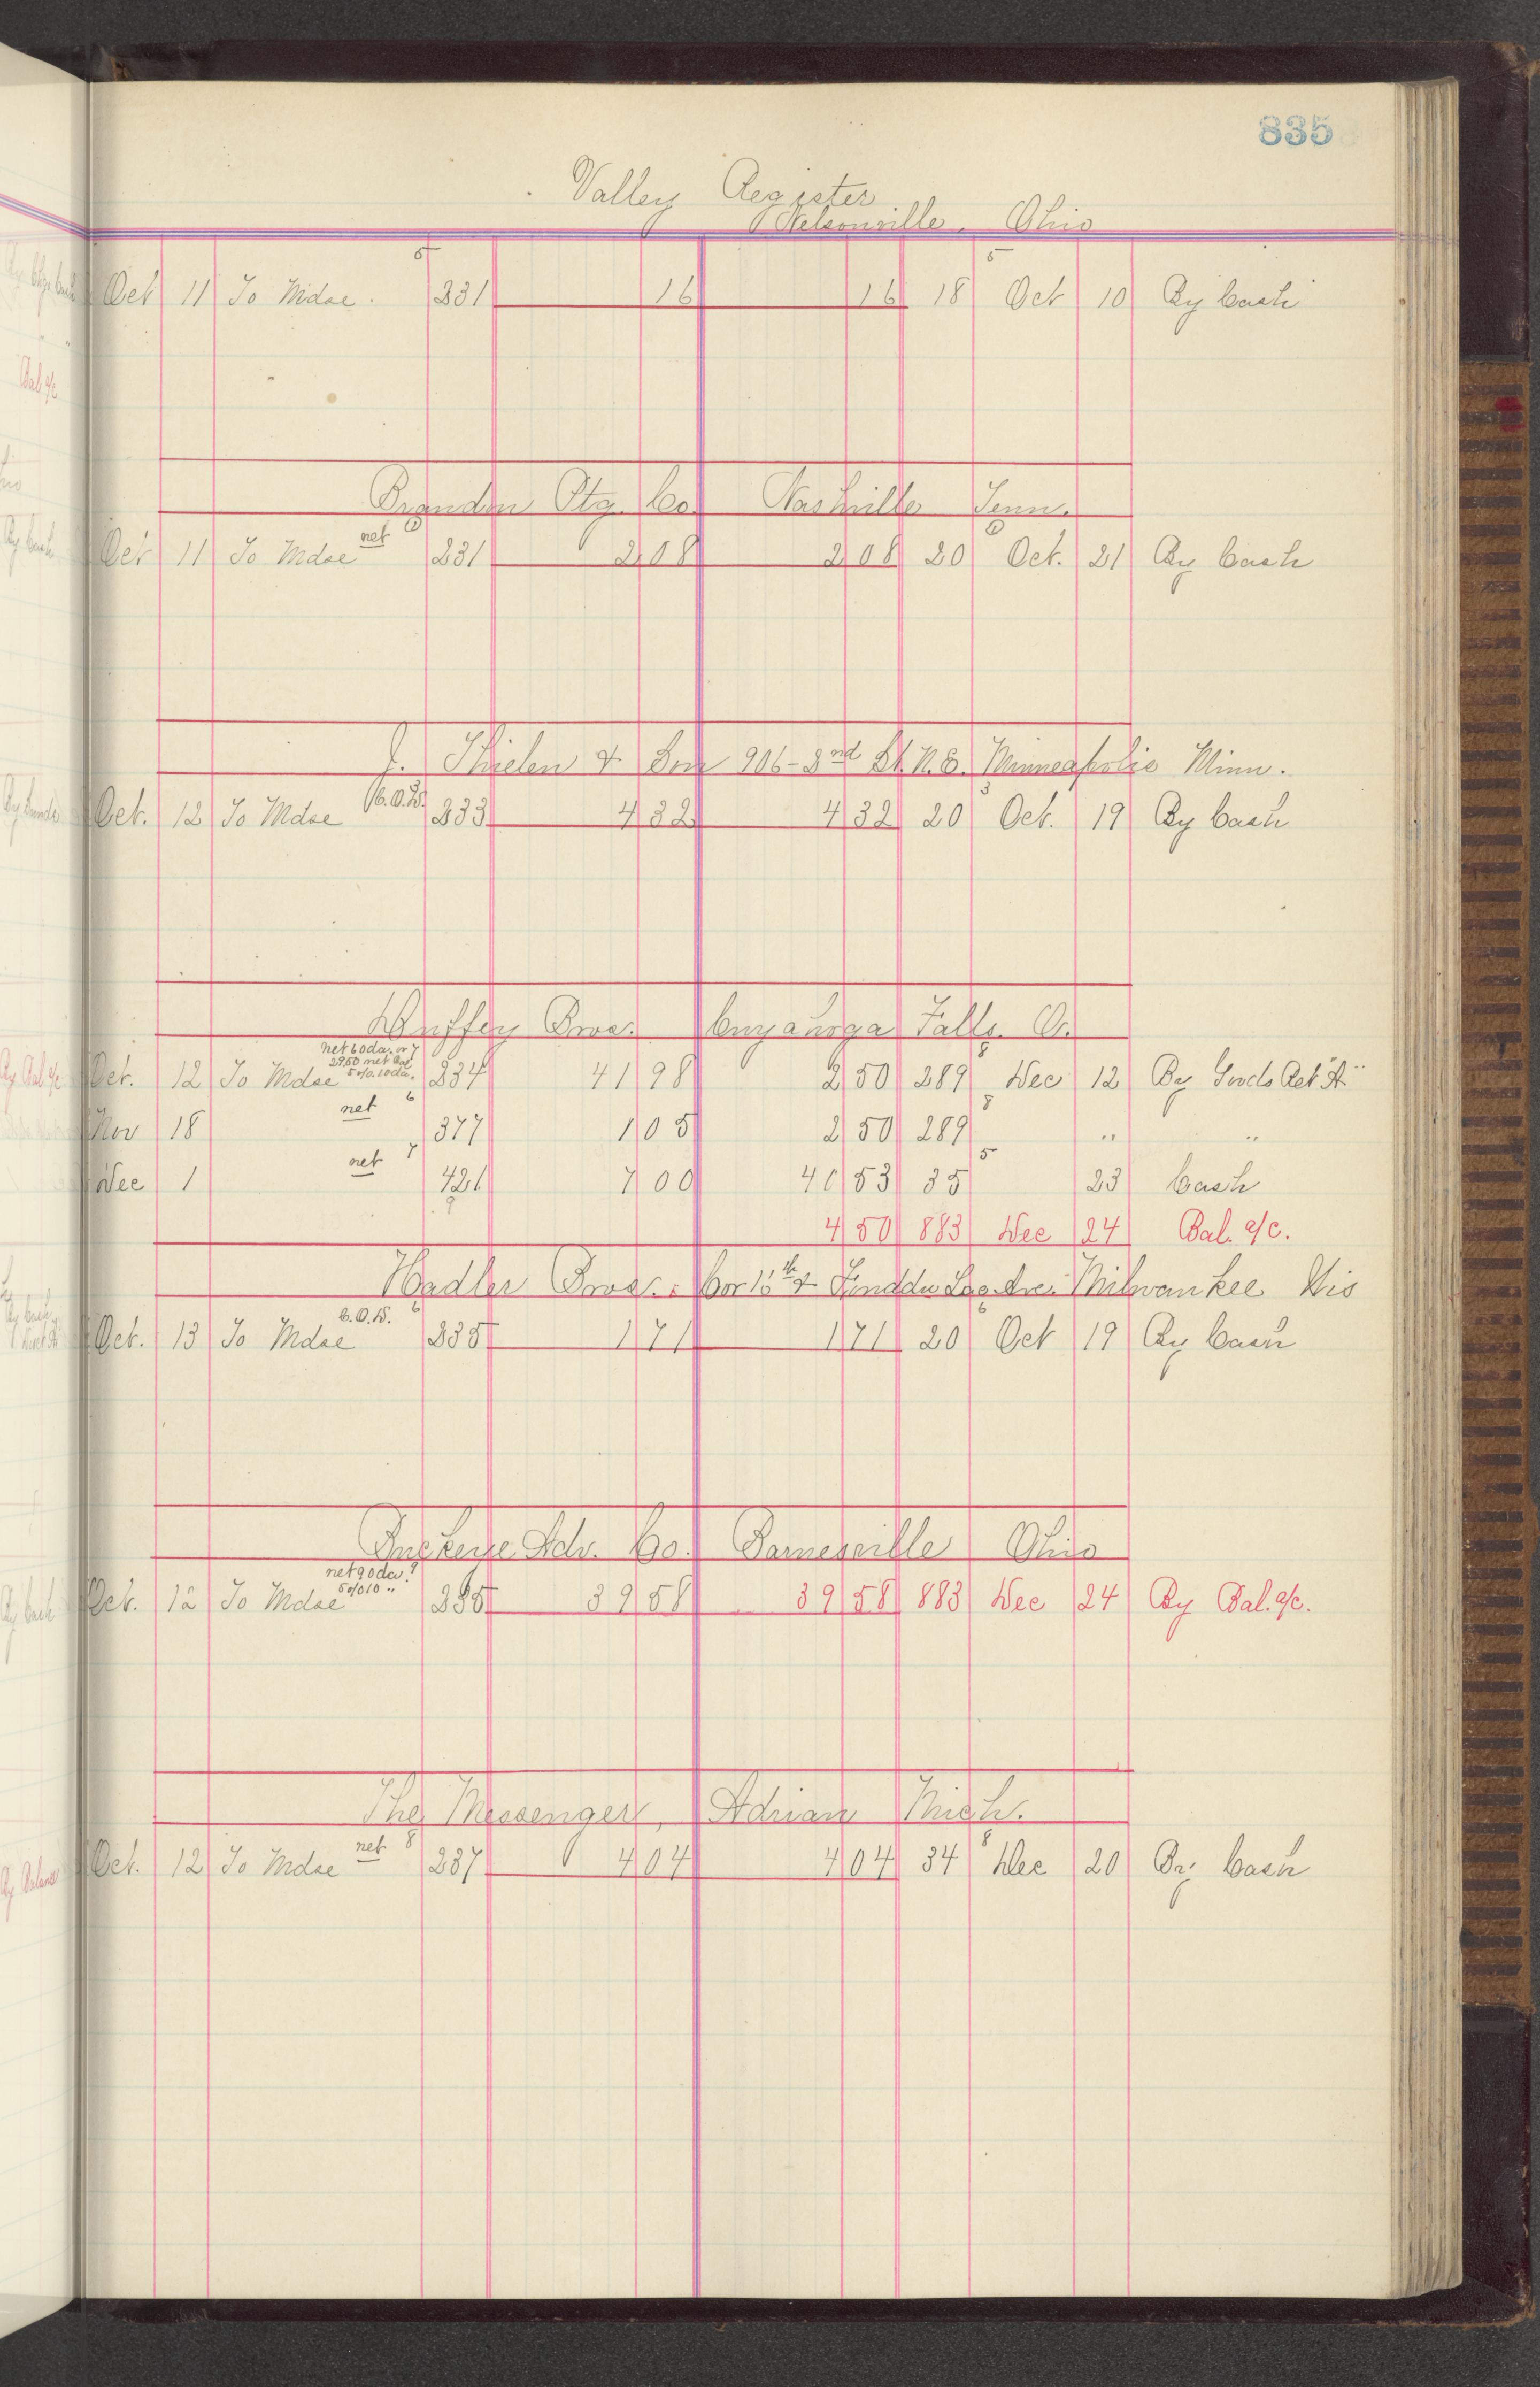 835
Valley Register
Nelsonville, Ohio
5 5
Oct 11 To Mdse. 231 16 16 18 Oct 10 By Cash
Brandon Ptg. Co. Nashville Tenn.
net
Oct 11 To Mdse 231 2 08 2 08 20 Oct. 21 By Cash
J. Thielen & Son 906-2nd St. N.E. Minneapolis Minn.
C.O.D. 3
Oct. 12 To Mdse 233 4 32 4 32 20 Oct. 19 By Cash
Duffey Bros. Cuyahoga Falls O.
net 60 da. or 7
29.50 net
5%10 da. 8
Oct. 12 To Mdse 234 41 98 2 50 289 Dec 12 By Goods Ret "A"
net 6 8
Nov 18 377 1 05 2 50 289 " "
net 7 5
Dec 1 421 7 00 40 53 35 23 Cash
4 50 883 Dec 24 Bal. a/c.
Hadler Bros. Cor 15th & Fonddu Lac Ave. Milwaukee Wis
C.O.D. 6 6
Oct. 13 To Mdse 235 1 71 1 71 20 Oct 19 By Cash
Buckeye Adv. Co. Barnesville Ohio
net 90 da. 9
5%10 "
Oct. 12 To Mdse 235 39 58 39 58 883 Dec 24 By Bal. a/c.
The Messenger, Adrian Mich.
net 8 8
Oct. 12 To Mdse 237 4 04 4 04 34 Dec 20 By Cash